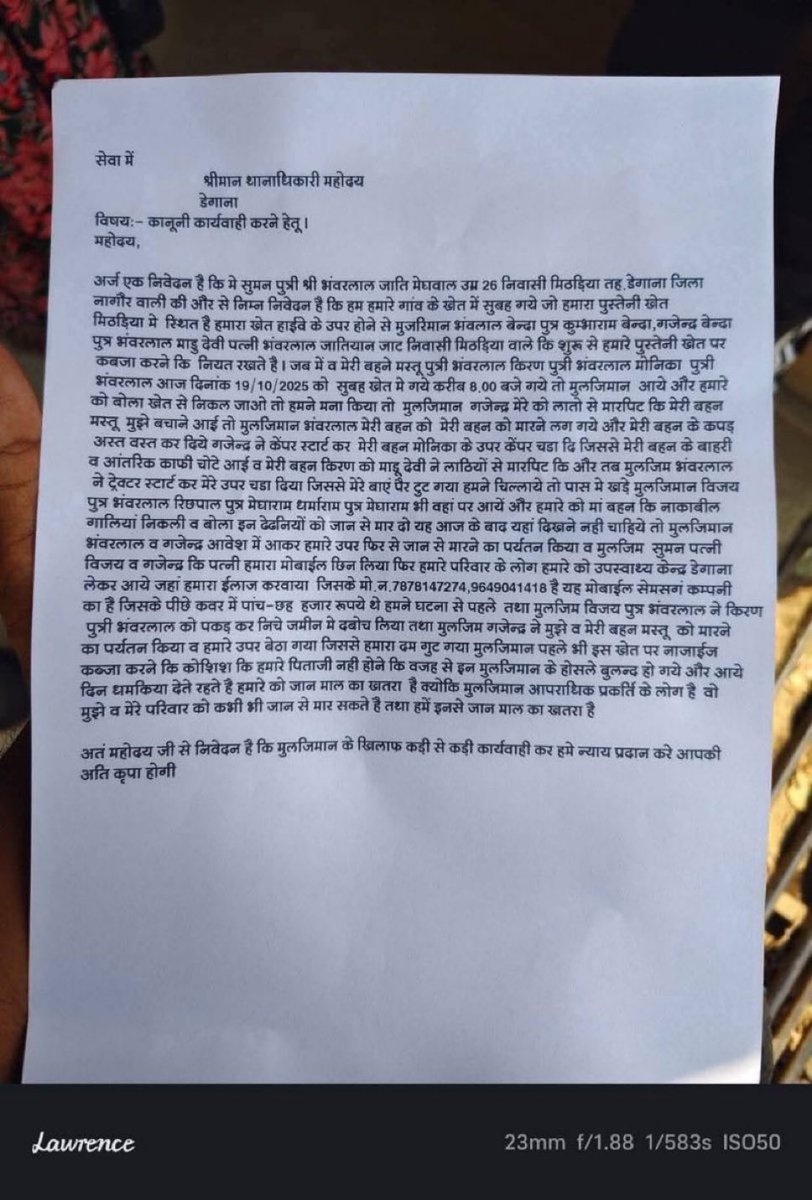 सेवा में
श्रीमान थानाधिकारी महोदय
डेगाना
विषय:- कानूनी कार्यवाही करने हेतू ।
महोदय,
अर्ज एक निवेदन है कि मे सुमन पुत्री श्री भंवरलाल जाति मेघवाल उम्र 26 निवासी मिठड़िया तह.डेगाना जिला
नागौर वाली की और से निम्न निवेदन है कि हम हमारे गांव के खेत में सुबह गये जो हमारा पुस्तेनी खेत
मिठड़िया मे स्थित है हमारा खेत हाईवे के उपर होने से मुजरिमान भंवलाल बेन्दा पुत्र कुम्भाराम बेन्दा,गजेन्द्र बेन्दा
पुत्र भंवरलाल माडु देवी पत्नी भंवरलाल जातियान जाट निवासी मिठड़िया वाले कि शुरू से हमारे पुस्तेनी खेत पर
कबजा करने कि नियत रखते है । जब में व मेरी बहने मस्तू पुत्री भंवरलाल किरण पुत्री भंवरलाल मोनिका पुत्री
भंवरलाल आज दिनांक 19/10/2025 को सुबह खेत मे गये करीब 8.00 बजे गये तो मुलजिमान आये और हमारे
को बोला खेत से निकल जाओ तो हमने मना किया तो मुलजिमान गजेन्द्र मेरे को लातो से मारपिट कि मेरी बहन
मस्तू मुझे बचाने आई तो मुलजिमान भंवरलाल मेरी बहन को मेरी बहन को मारने लग गये और मेरी बहन के कपड़
अस्त वस्त कर दिये गजेन्द्र ने केंपर स्टार्ट कर मेरी बहन मोनिका के उपर केंपर चडा दि जिससे मेरी बहन के बाहरी
व आंतरिक काफी चोटे आई व मेरी बहन किरण को माडू देवी ने लाठियों से मारपिट कि और तब मुलजिम भंवरलाल
ने ट्रेक्टर स्टार्ट कर मेरे उपर चडा दिया जिससे मेरे बाएं पैर टुट गया हमने चिल्लाये तो पास मे खडे मुलजिमान विजय
पुत्र भंवरलाल रिछपाल पुत्र मेघाराम धर्माराम पुत्र मेघाराम भी वहां पर आयें और हमारे को मां बहन कि नाकाबील
गालियां निकली व बोला इन ढेढनियों को जान से मार दो यह आज के बाद यहां दिखने नही चाहिये तो मुलजिमान
भंवरलाल व गजेन्द्र आवेश में आकर हमारे उपर फिर से जान से मारने का पर्यतन किया व मुलजिम सुमन पत्नी
विजय व गजेन्द्र कि पत्नी हमारा मोबाईल छिन लिया फिर हमारे परिवार के लोग हमारे को उपस्वाथ्य केन्द्र डेगाना
लेकर आये जहां हमारा ईलाज करवाया जिसके मो.न.7878147274,9649041418 है यह मोबाईल सेमसगं कम्पनी
का है जिसके पीछे कवर में पांच-छह हजार रूपये थे हमने घटना से पहले तथा मुलजिम विजय पुत्र भंवरलाल ने किरण
पुत्री भंवरलाल को पकड़ कर निचे जमीन मे दबोच लिया तथा मुलजिम गजेन्द्र ने मुझे व मेरी बहन मस्तू को मारने
का पर्यतन किया व हमारे उपर बेठा गया जिससे हमारा दम गुट गया मुलजिमान पहले भी इस खेत पर नाजाईज
कब्जा करने कि कोशिश कि हमारे पिताजी नही होने कि वजह से इन मुलजिमान के होसले बुलन्द हो गये और आये
दिन धमकिया देते रहते है हमारे को जान माल का खतरा है क्योकि मुलजिमान आपराधिक प्रकर्ति के लोग है वो
मुझे व मेरे परिवार को कभी भी जान से मार सकते है तथा हमें इनसे जान माल का खतरा है
अतं महोदय जी से निवेदन है कि मुलजिमान के खिलाफ कड़ी से कड़ी कार्यवाही कर हमे न्याय प्रदान करे आपकी
अति कृपा होगी
Lawrence
23mm f/1.88 1/583s ISO50